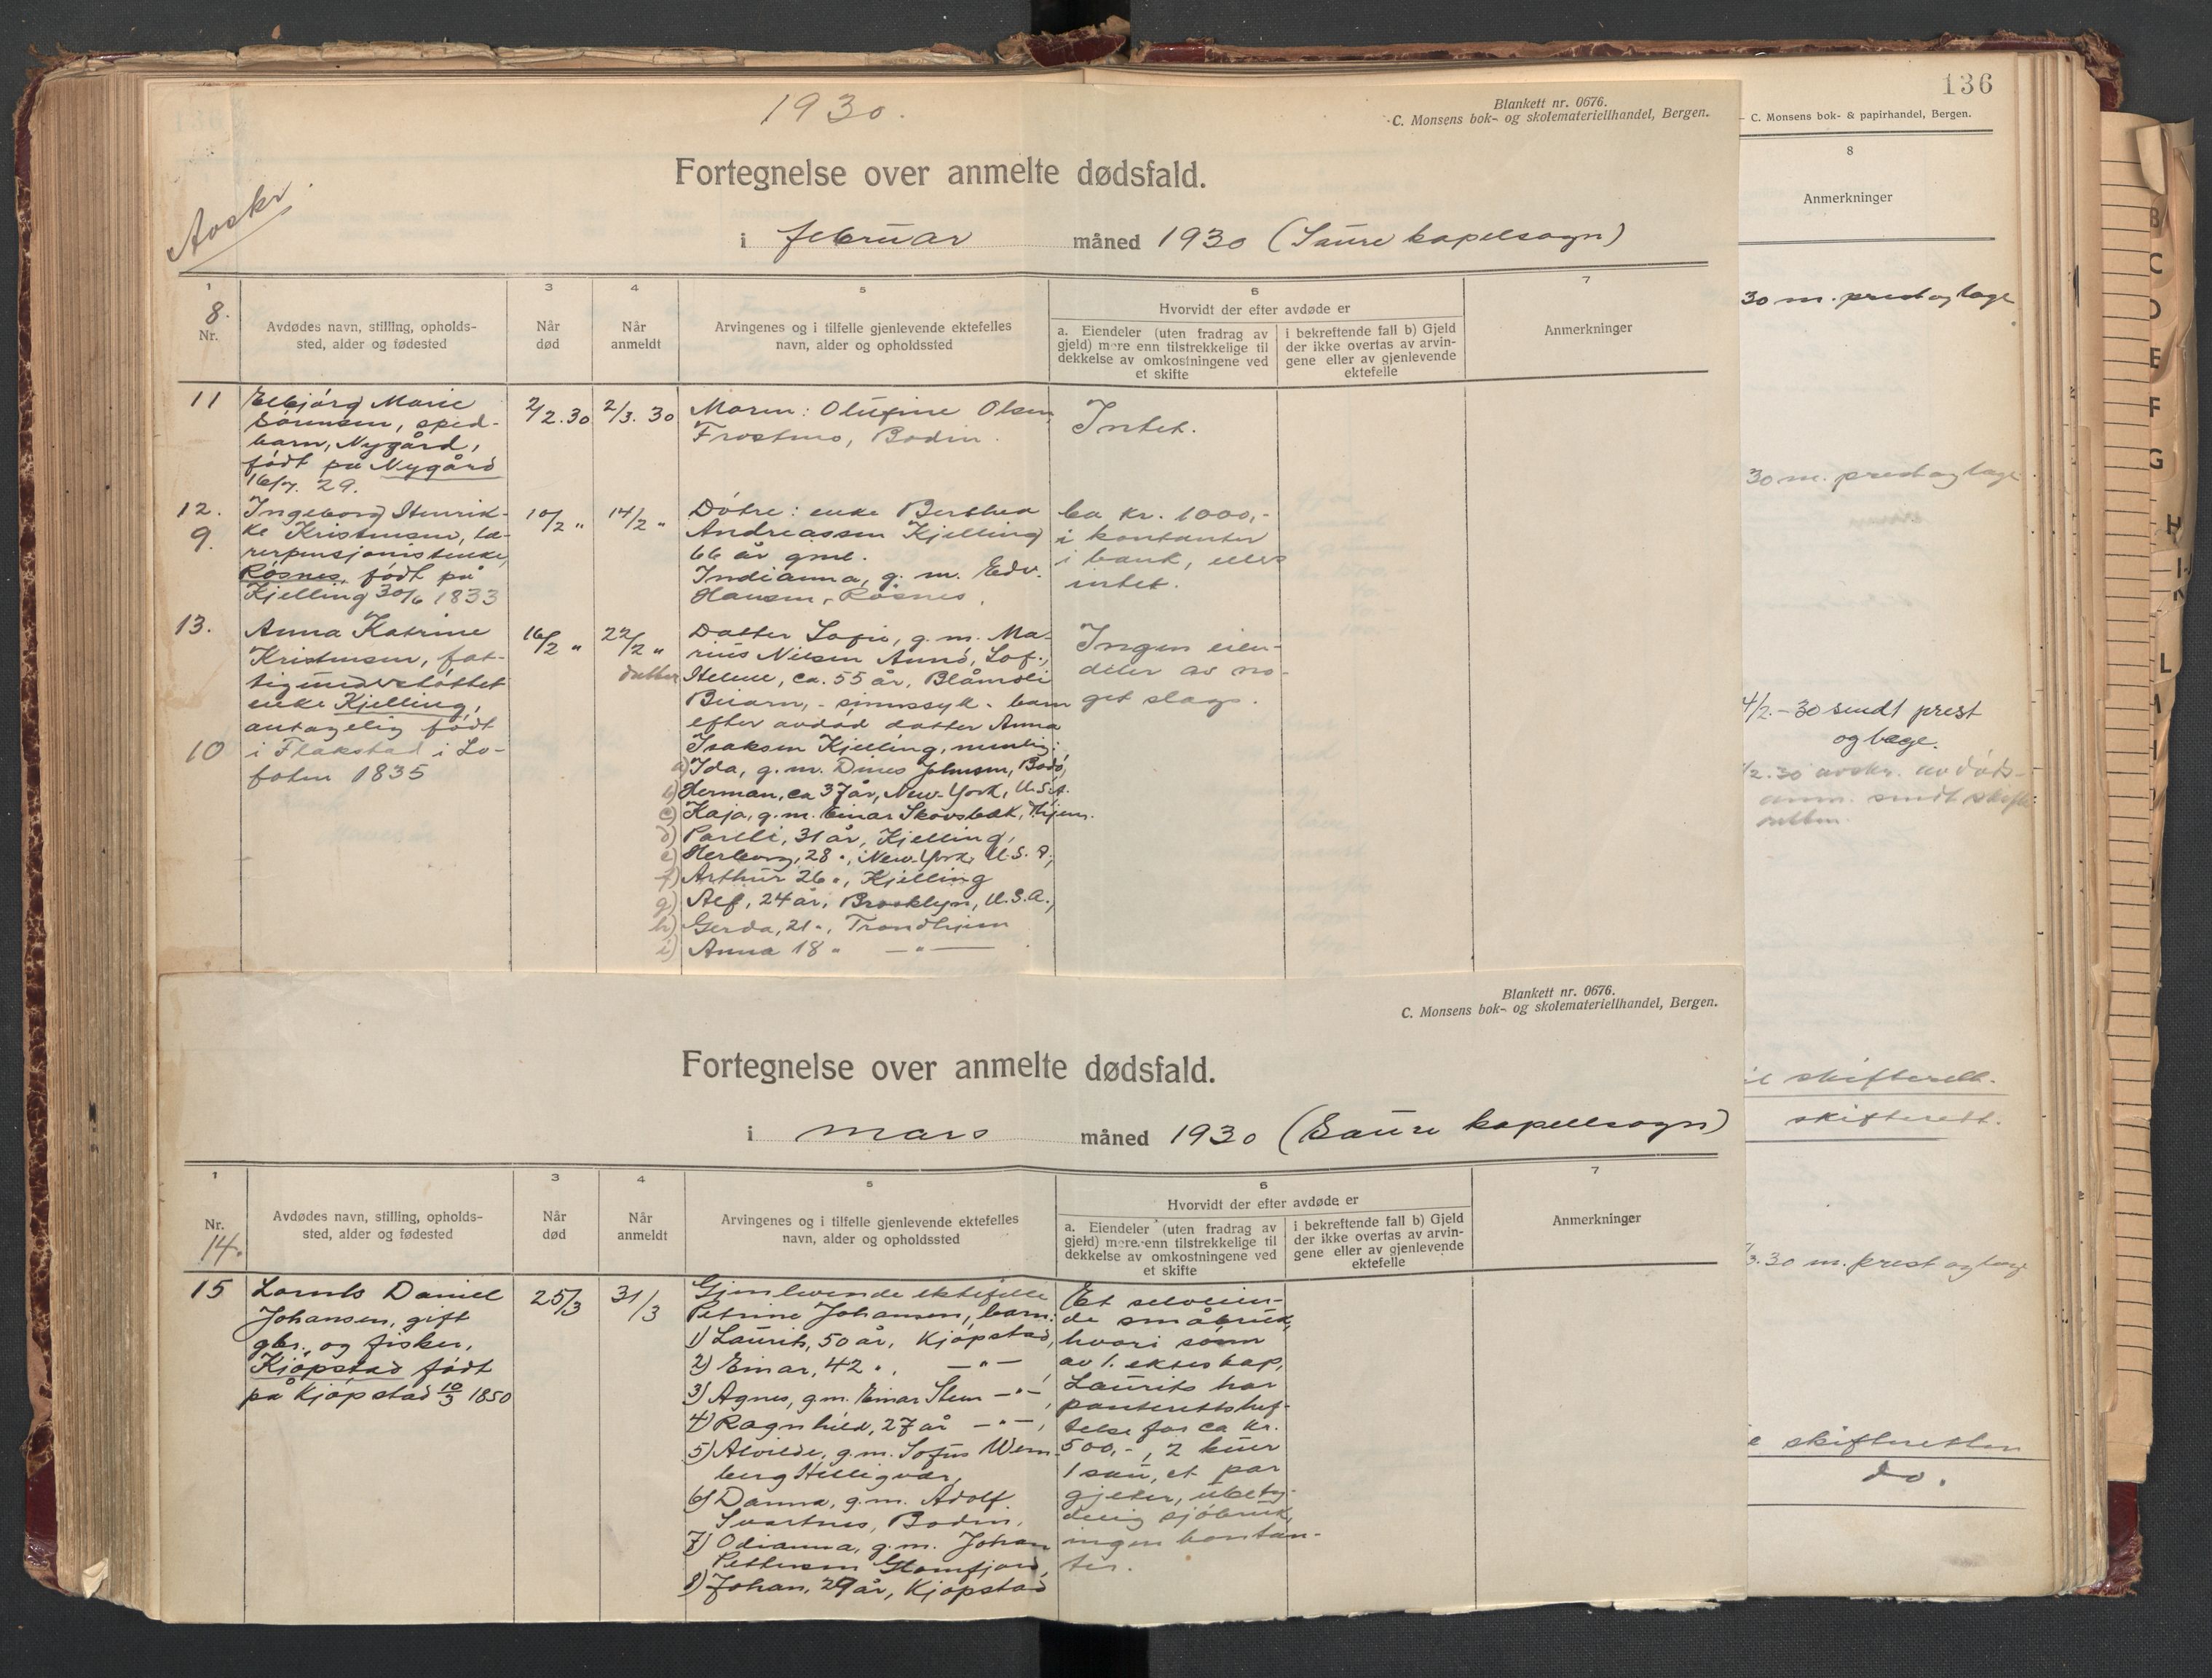 136
C. Monsens bok- & papirhandel, Bergen.
8
Anmerkninger
30 m. prest og læge
30 m. prest og læge
4/2.-30 sendt prest
og læge.
/2.30 avskr. av døds-
anm. sendt skifte
retten.
skifterett.
skifterett.
3.30 m. prest og læge
skifteretten
do.
1930.
Blankett nr. 0676.
C. Monsens bok- og skolemateriellhandel, Bergen.
Avskr.
Fortegnelse over anmelte dødsfald.
i februar måned 1930 (Saure kapelsogn)
1
8.
Nr.
Avdødes navn, stilling, opholds-
sted, alder og fødested
3
Når
død
4
Når
anmeldt
5
Arvingenes og i tilfelle gjenlevende ektefelles
navn, alder og opholdssted
6
Hvorvidt der efter avdøde er
a. Eiendeler (uten fradrag av
gjeld) mere enn tilstrekkelige til
dekkelse av omkostningene ved
et skifte
i bekreftende fall b) Gjeld
der ikke overtas av arvin-
gene eller av gjenlevende
ektefelle
7
Anmerkninger
11
Elbjørg Marie
Sørensen, sped-
barn, Nygård,
født på Nygård
16/7. 29.
2/2.30
2/3. 30
Moren: Olufine Olsen
Frostmo, Bodin.
Intet.
12.
9.
Ingeborg Henrik-
ke Kristensen, læ-
rerpensjonistenke,
Røsnes, født på
Kjelling 30/6 1833
10/2 "
14/2 "
Døtre: enke Berthea
Andreassen Kjelling
66 år gml.
Indianna, g. m. Edv.
Hansen, Røsnes.
ca kr. 1000,-
i kontanter
i bank, ellers
intet.
13.
10
Anna Katrine
Kristensen, fat-
tigunderstøttet
enke Kjelling,
antagelig født
i Flakstad i Lo-
foten 1835
16/2 "
22/2 "
Datter Sofie, g. m. Ma-
rius Nilsen Aunø, Lof.,
datter Helene, ca. 55 år, Blåmoli
Beiarn, - sinnssyk - barn
efter avdød datter Anna
Isaksen Kjelling, nemlig:
a) Ida, g. m. Dines Johnsen, Bodø,
b) Herman, ca 37 år, New-York, U.S.A.
c) Kaja, g. m. Einar Skovsbæk, Thjem.
d) Parelli, 31 år, Kjelling,
e) Herborg, 28 ", New-York, U.S.A,
f) Arthur 26 ", Kjelling
g) Alf, 24 år, Brooklyn, U.S.A.,
h) Gerda, 21 ", Trondhjem
i) Anna 18 " — " —
Ingen eien-
deler av no-
get slags.
Blankett nr. 0676.
C. Monsens bok- og skolemateriellhandel, Bergen.
Fortegnelse over anmelte dødsfald.
i mars måned 1930 (Saure kapellsogn)
1
Nr.
14.
Avdødes navn, stilling, opholds-
sted, alder og fødested
3
Når
død
4
Når
anmeldt
5
Arvingenes og i tilfelle gjenlevende ektefelles
navn, alder og opholdssted
6
Hvorvidt der efter avdøde er
a. Eiendeler (uten fradrag av
gjeld) mere enn tilstrekkelige til
dekkelse av omkostningene ved
et skifte
i bekreftende fall b) Gjeld
der ikke overtas av arvin-
gene eller av gjenlevende
ektefelle
7
Anmerkninger
15
Daniel
Johansen, gift
gbr. og fisker,
Kjøpstad født
på Kjøpstad 10/3 1850
25/3
31/3
Gjenlevende ektefelle
Petrine Johansen, barn:
1) Laurits, 50 år, Kjøpstad,
2) Einar, 42 ", — " —
3) Agnes, g. m. Einar Steen — " —,
4) Ragnhild, 27 år — " —,
5) Alvilde, g. m. Sofus Wem-
berg Helligvær,
6) Danna, g. m. Adolf
Svartnes, Bodin,
7) Odianna, g. m. Johan
Pettersen Glomfjord,
8) Johan, 29 år, Kjøpstad
Et selveien-
de småbruk,
hvori sønn
av 1. ekteskap,
Laurits har
panterettshef-
telse for ca kr.
500,-, 2 kuer
1 sau, et par
gjeter, ubety-
delig sjøbruk,
ingen kontan-
ter.